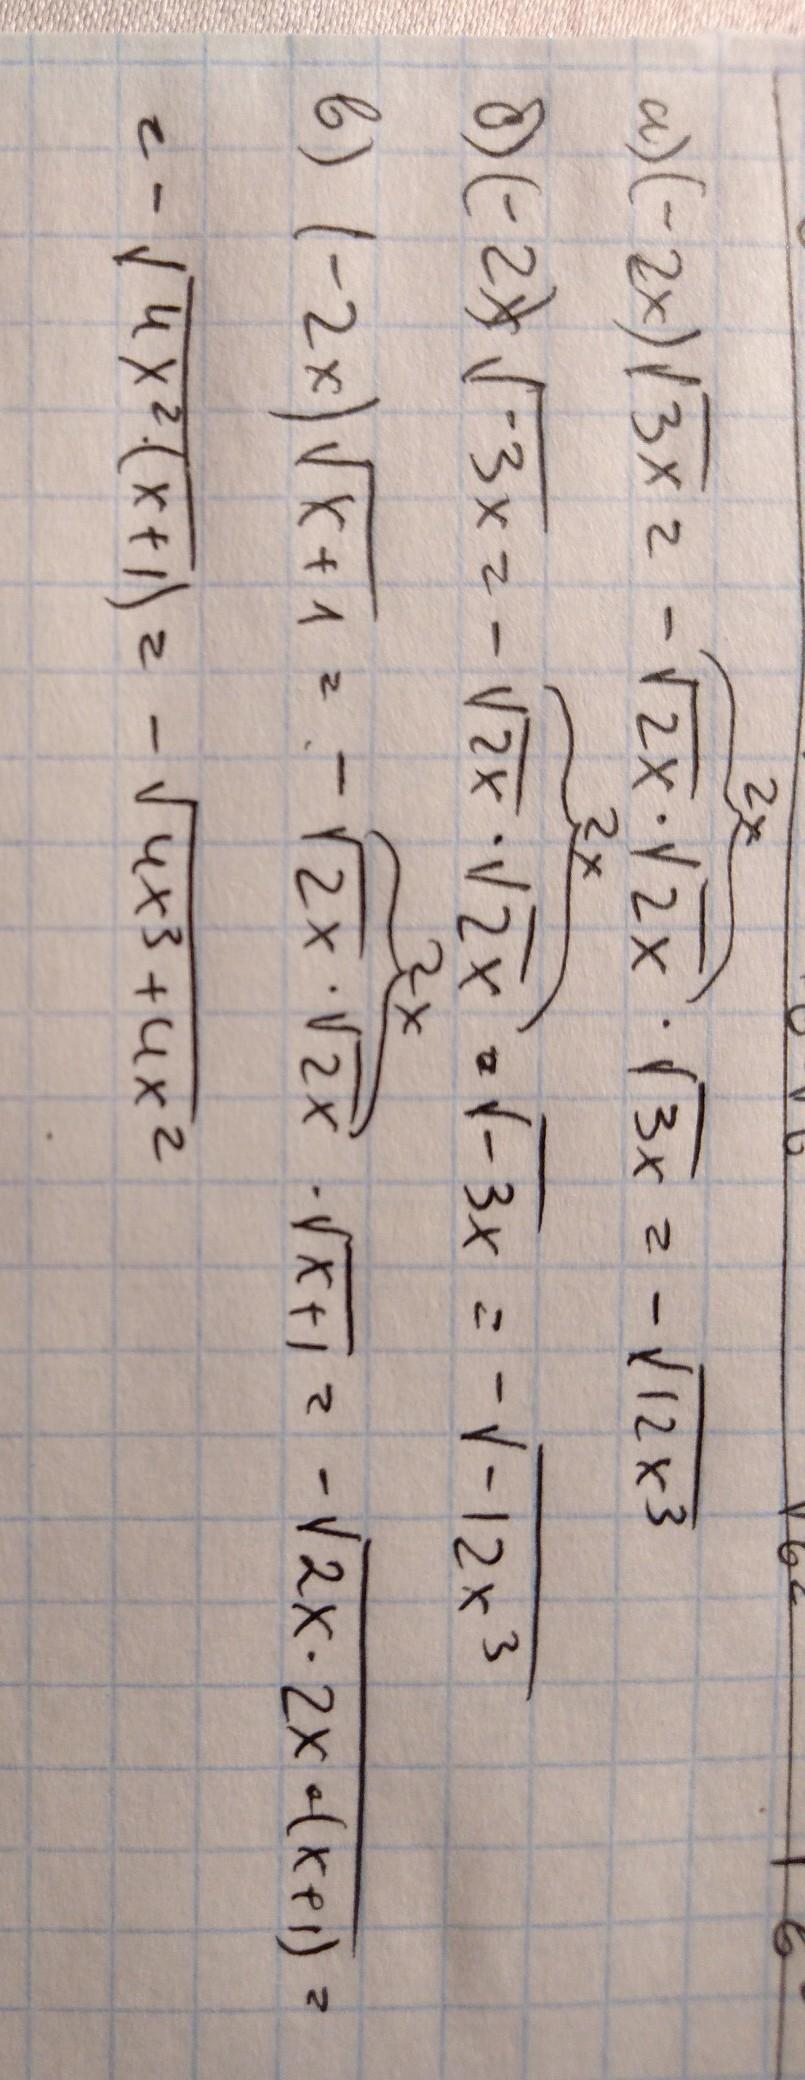 а) (-2x)√3x = -√2x · √2x · √3x = -√12x³
2x
б) (-2x)√-3x = -√2x · √2x · √-3x = -√-12x³
2x
в) (-2x)√x+1 = -√2x · √2x · √x+1 = -√2x · 2x · (x+1) =
2x
= -√4x² · (x+1) = -√4x³+4x²